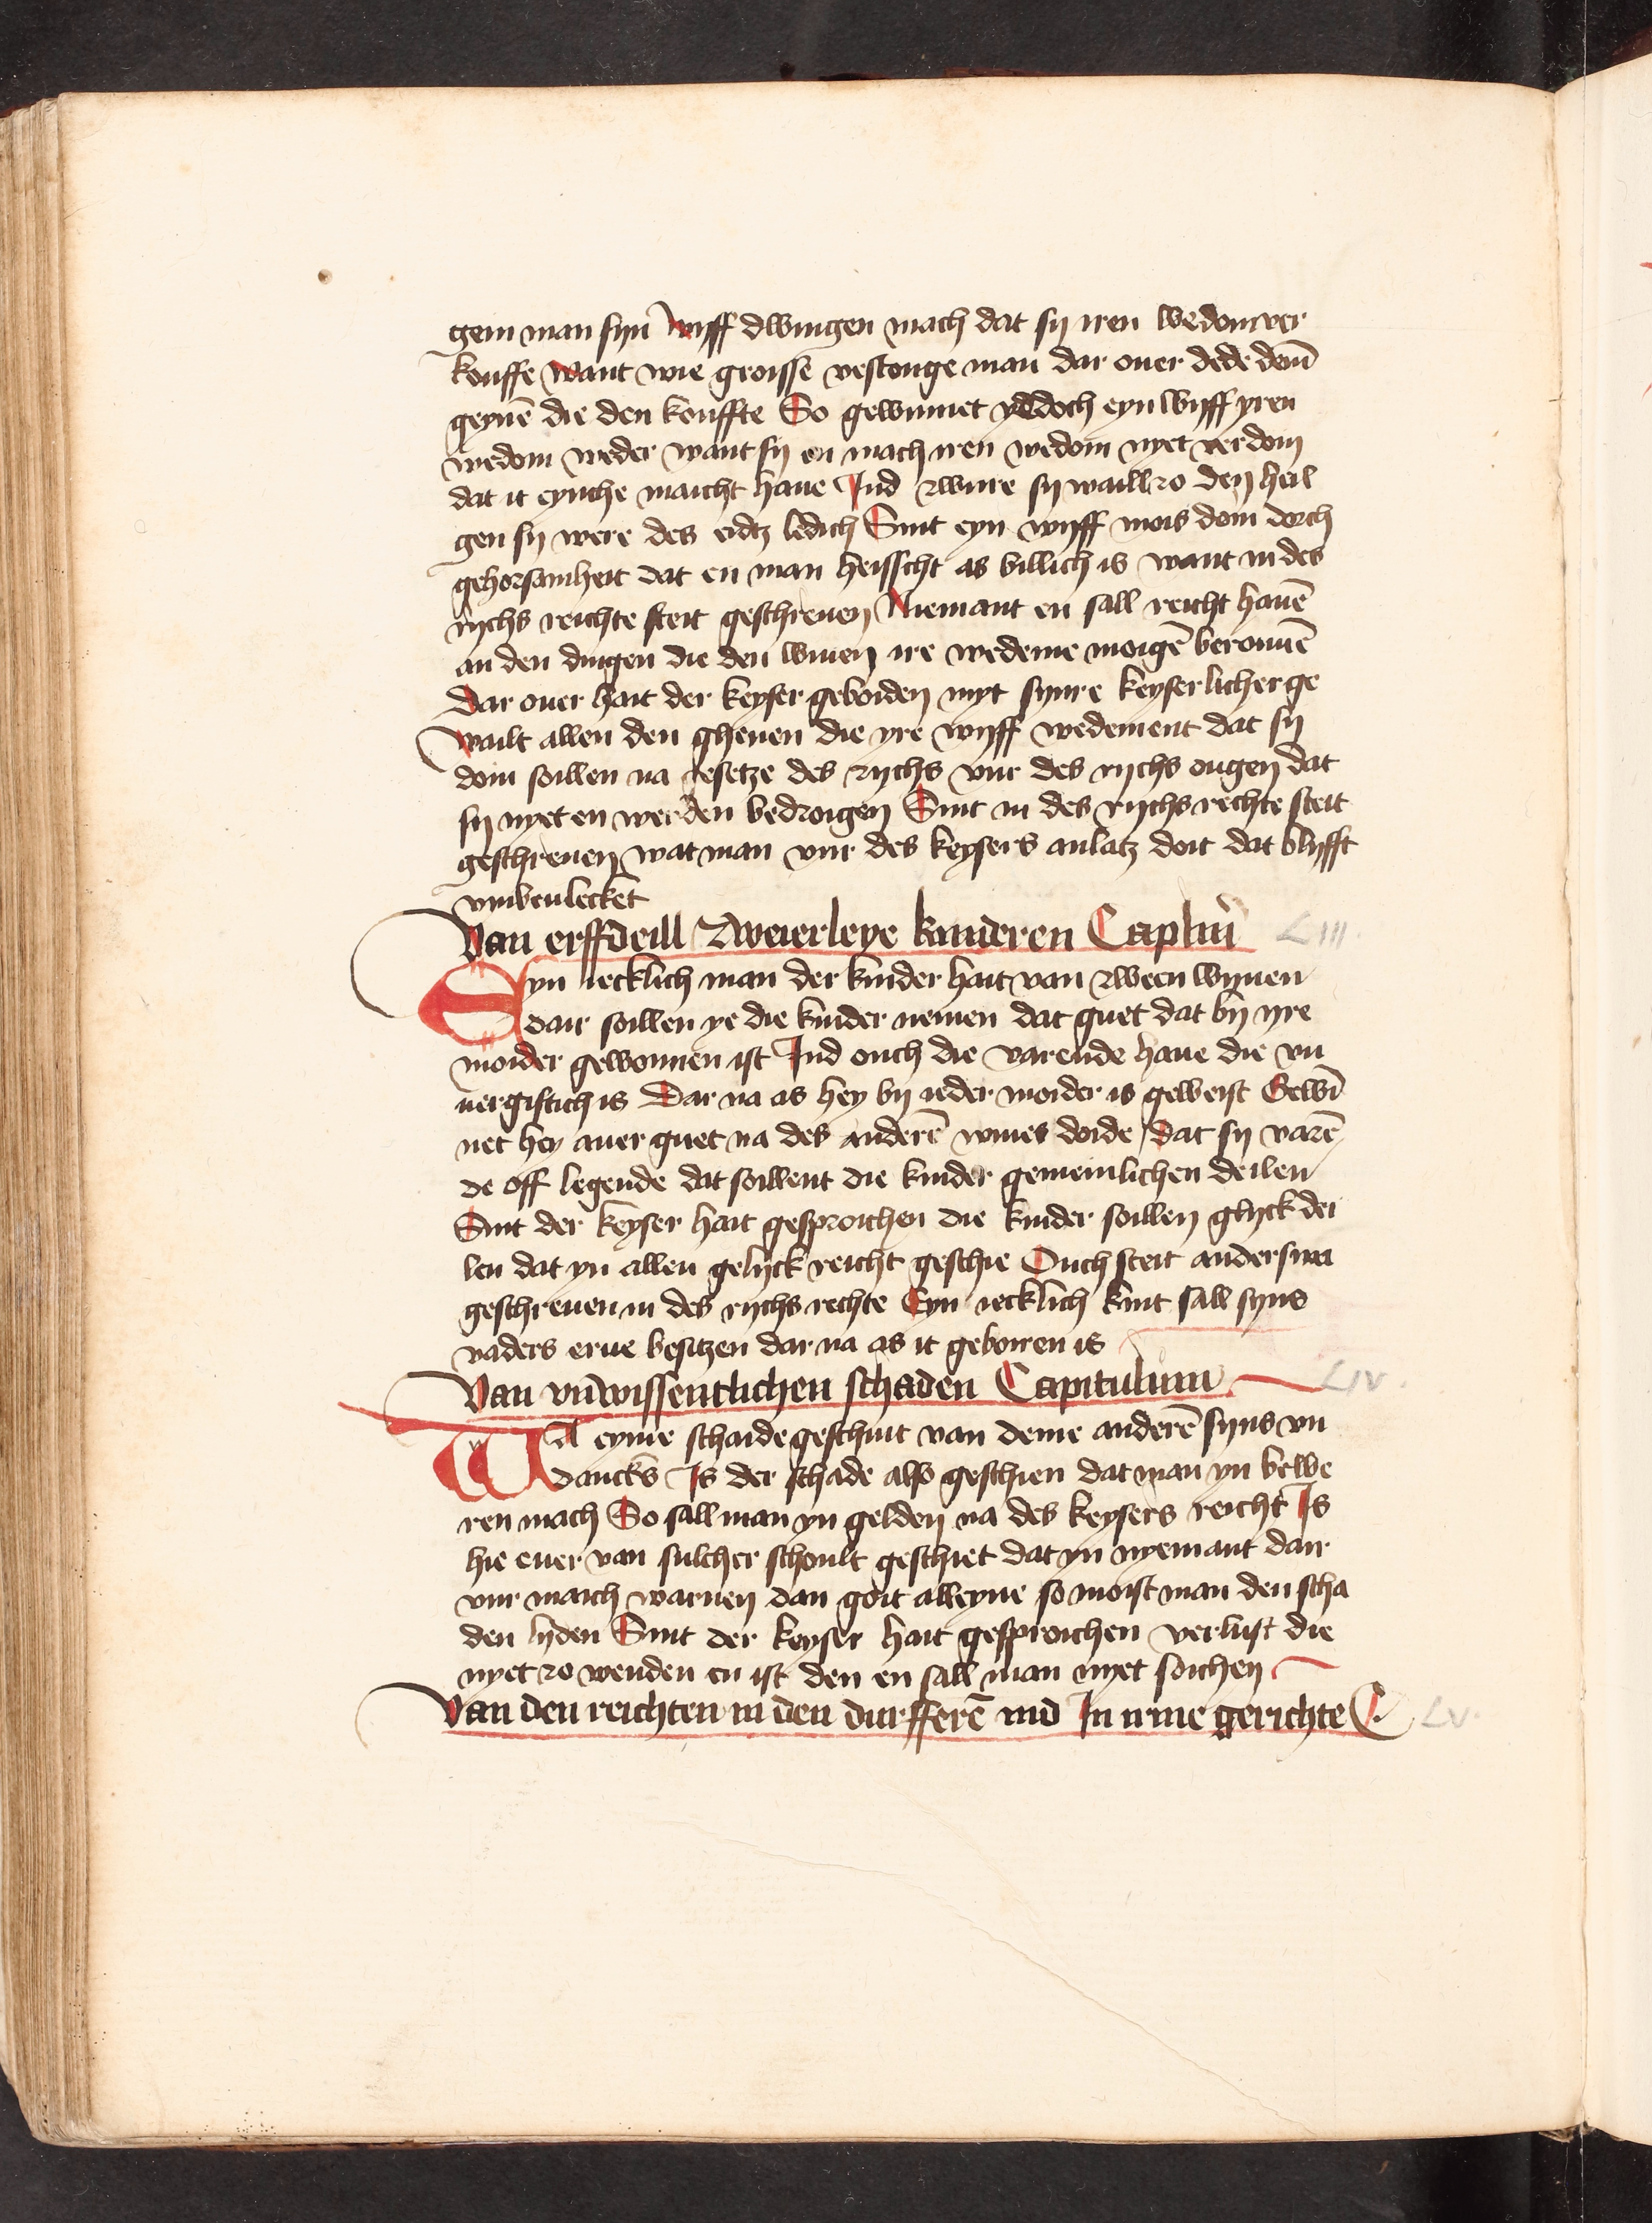 gem man syn wyff dwingen mach dat sy iren wedom ver
kouffe want wie groisse vestonge man dar ouer dede dem̄
geynē die den kouffte So gewinnet yedoch eyn wyff yren
wedom weder want sy en mach iren wedom nyet verdom
dat it eynche maicht haue Ind zwure sy waill zo den heil
gen sy were des eidtz ledich Sint eyn wyff mois doin dorch
gehorsamheit dat en man heisscht as billich is want in des
rychs reichte steit geschreuen Niemant en sall reicht hauē
an den dingen die den wiuen ire wedeme moigē beromē
Dar ouer hait der keyser geboiden myt synre keyserlicher ge
wailt allen den ghenen die yre wyff wedement dat sy
doin soillen na gesetze des rychs vur des rychs ougen dat
sy nyet en werden bedroigen Sint in des rychs rechte steit
geschreuen wat man vur des keysers anlatz doit dat blyfft
vnbeulecket
Van erffdeill zweierleye kinderen Caplm̄ LIII.
Eyn iecklich man der kinder hait van zween wyuen
dair soillen ye die kinder nemen dat guet dat by yre
moider gewonnen ist Ind ouch die varende haue die vn
uergiftich is Dar na as hey by ieder moider is geweist Gewī
net hey auer guet na des anderē wiues doide dat sy varē
de off legende dat soillent die kinder gemeinlichen deilen
Sint der keyser hait gesproichen die kinder soillen glyck dei
len dat yn allen gelyck reicht geschie Ouch steit anderswa
geschreuen in des rychs rechte Eyn iecklich kint sall syns
vaders erue besitzen dar na as it geboren is
Van vnwissentlichen schaden Capitulum LIV.
Wa eyme schaide geschuit van deme anderē syns vn
dancks Is der schade also geschien dat man yn bewe
ren mach So sall man yn gelden na des keysers reicht Is
hie euer van sulcher schoult geschiet dat yn nyemant dair
vur maich warnen dan goit alleyne so moist man den scha
den lyden Sint der keyser hait gesproichen verlust die
nyet zo wenden en ist den en sall man nyet soichen
Van den reichten in den durfferē ind In irme gerichte C. LV.